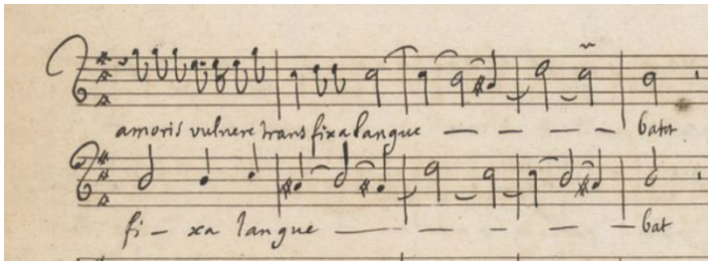 amoris vulnere transfixa langue — — — — bat
fi — xa langue — — — — bat